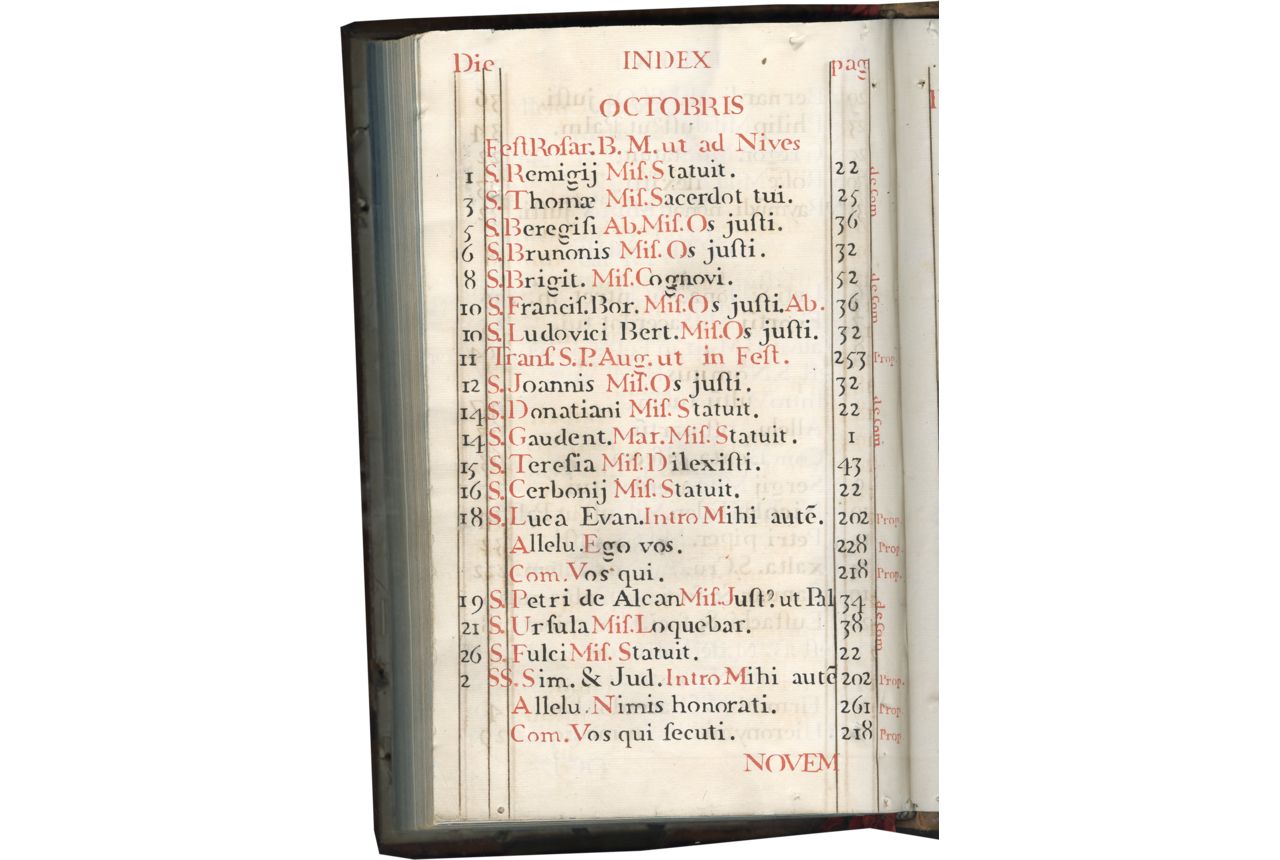 Die INDEX pag
OCTOBRIS
Feſt Roſar. B. M. ut ad Nives
1 S. Remigij Miſ. Statuit. 22 de Com
3 S. Thomæ Miſ. Sacerdot tui. 25
5 S. Beregiſi Ab. Miſ. Os juſti. 36
6 S. Brunonis Miſ. Os juſti. 32
8 S. Brigit. Miſ. Cognovi. 52 de Com
10 S. Franciſ. Bor. Miſ. Os juſti. Ab. 36
10 S. Ludovici Bert. Miſ. Os juſti. 32
11 Tranſ. S. P. Aug. ut in Feſt. 253 Prop.
12 S. Joannis Miſ. Os juſti. 32
14 S. Donatiani Miſ. Statuit. 22 de Com
14 S. Gaudent. Mar. Miſ. Statuit. 1
15 S. Tereſia Miſ. Dilexiſti. 43
16 S. Cerbonij Miſ. Statuit. 22
18 S. Luca Evan. Intro Mihi autē. 202 Prop.
Allelu. Ego vos. 228 Prop.
Com. Vos qui. 218 Prop.
19 S. Petri de Alcan Miſ. Juſt? ut Pal 34 de Com
21 S. Urſula Miſ. Loquebar. 38
26 S. Fulci Miſ. Statuit. 22
2 SS. Sim. & Jud. Intro Mihi autē 202 Prop.
Allelu. Nimis honorati. 261 Prop.
Com. Vos qui ſecuti. 218 Prop
NOVEM